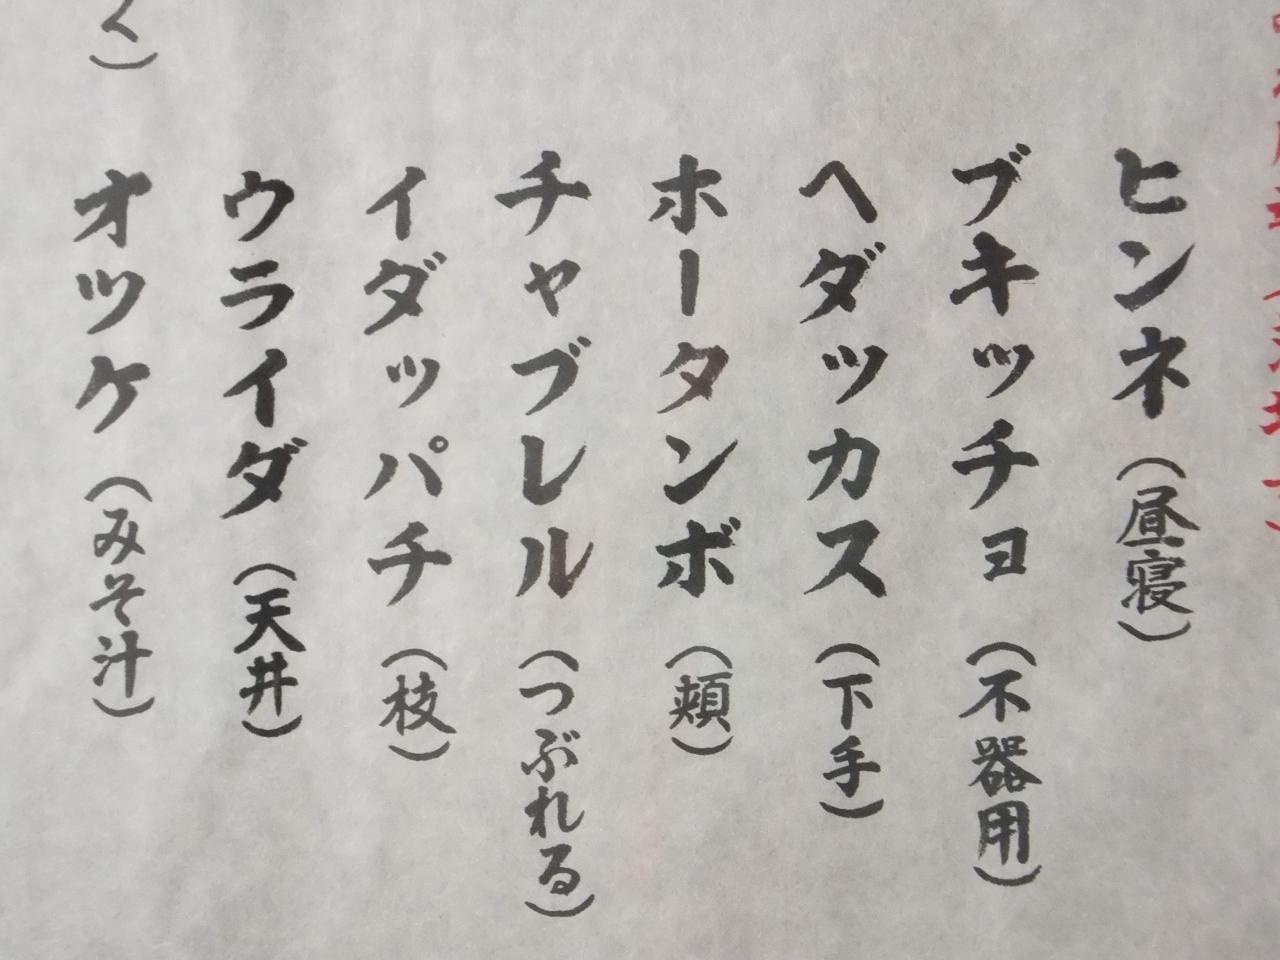 ヒンネ（昼寝）
ブキッチョ（不器用）
ヘダッカス（下手）
ホータンボ（頬）
チャブレル（つぶれる）
イダッパチ（枝）
ウライダ（天井）
オツケ（みそ汁）
く）